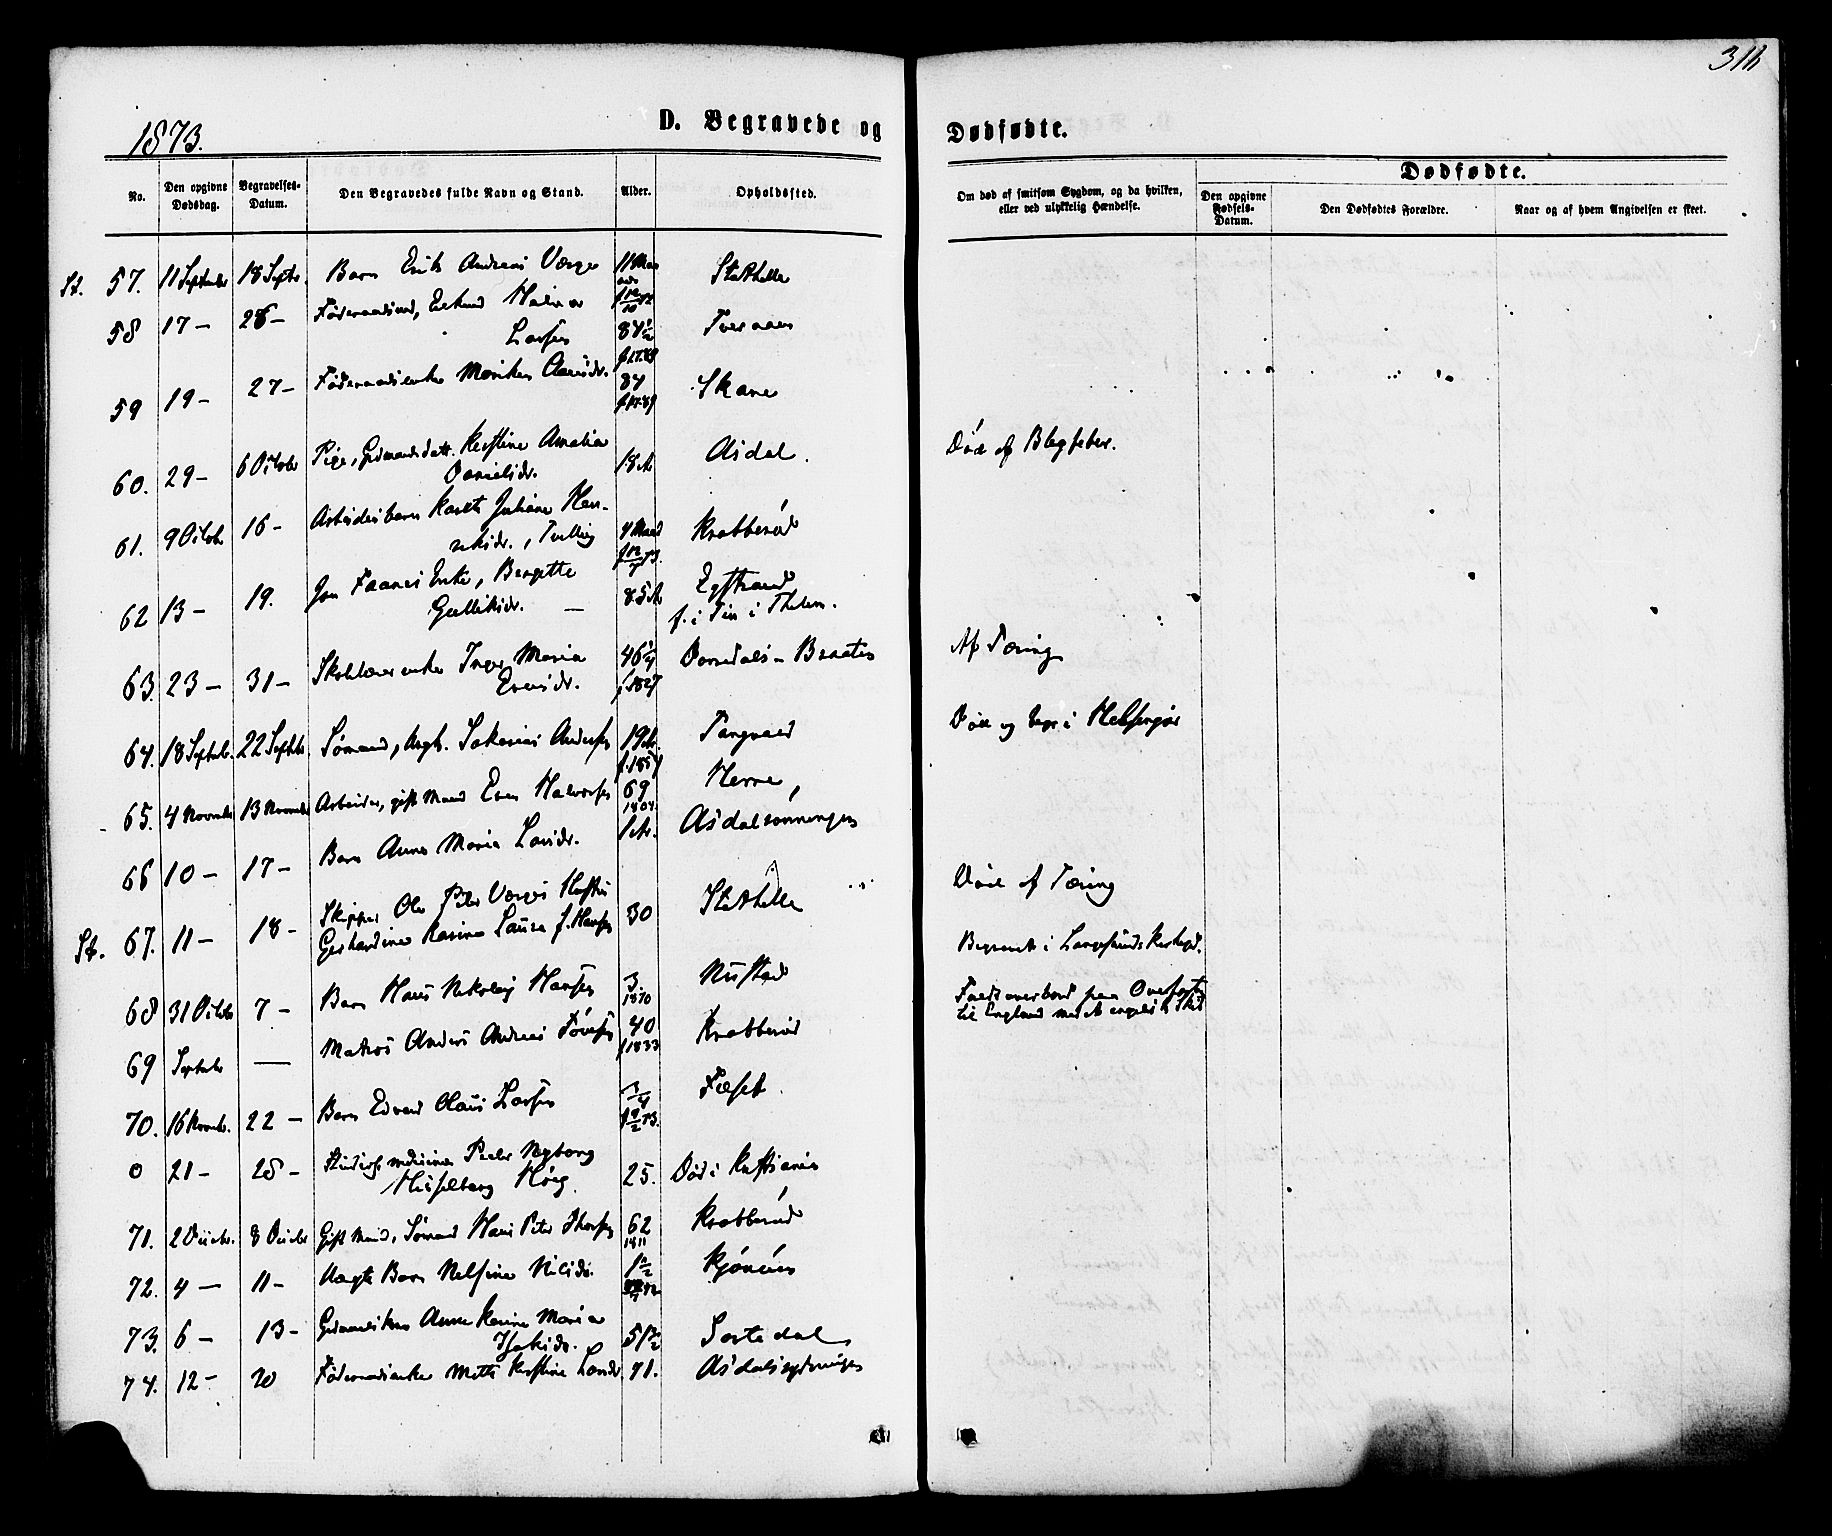 311
1873.
D. Begravede og Dødfødte.
Dødfødte.
No.
Den opgivne Dødsdag.
Begravelses-Datum.
Den Begravedes fulde Navn og Stand.
Alder.
Opholdssted.
Om død af smitsom Sygdom, og da hvilken, eller ved ulykkelig Hændelse.
Den opgivne Fødsels-Datum.
Den Dødfødtes Forældre.
Naar og af hvem Angivelsen er skeet.
St. 57. 11 Septembr 18 Septr. Barn Erik Andreas Værge 11 Maa Stathelle
58 17 – 28 – Føderaadsmd, Enkemd Halvor
Larsen 84 1/2 Tveraaen
59 19 – 27 – Føderaadsenke Mariken Clausdr. 84 Skane
60. 29 – 6 Octobr Pige, Grdmandsdatt. Kirstine Amalia
Danielsdr. 18 Ar Asdal. Död af Blegfeber.
61. 9 Octobr. 16 – Arbeidersbarn Karen Juliane Han-
sdr., Tvilling 4 Maad Krabberød
62 13 – 19. Enke, Bergitte
Gulliksdr. 85 Ar Eystrand
f. i Tin i Thelem.
63. 23 – 31 – Skolelærerenke Inger Maria
Evensdr. 46 1/4 f. 1827 Dorsdals-Braaten Af Tæring
64. 18 Septbr. 22 Septbr. Sømand, Ungk. Sakarias Andersen 19 Ar. f. 1854 Tangvald Död og begr i Helsingör
65. 4 Novmbr 13 Novmbr Arbeider, gift Mand Even Halvorsen 69 1804. Herre,
66 10 – 17 – Barn Anne Maria Larsdr. 1 Ar. Asdalsanningen
Död af Tæring
St. 67. 11 – 18 – Skipper Ole Peter Værges Hustru
Gerhardine Karine Laura f. Hansen 30 Stathelle
Begravet i Langesunds Kirkegd.
68 31 Octobr 7 – Barn Hans Nikolai Hansen 3. 1870 Nustad
69 Septembr — Matros Anders Andreas Tønesen 40 f 1833 Krabberød Faldt overbord paa Overfarten
til England med et engelsk Skib
70. 16 Novmbr. 22 – Barn Edvard Olaus Larsen 3/4 Feset
0 21 – 28 – Student medicinæ Peder Nyborg
Hüselberg Höeg. 25. Död i Kristiania
71. 2 Decbr. 8 Decbr Gift Mand, Sømand Hans Peter Thorsen 62 1811 Krabberød
72. 4 – 11 – Uægte Barn Nelsine Nilsdr. 1 1/2 Kjønnes
73. 6 – 13 – Gaardmandskone Anne Karine Maria
Isaksdr. 51 1/2 Sortedal
74. 12 – 20 Føderaadsenke Mette Kirstine Larsdr. 71. Asdalsrydningen